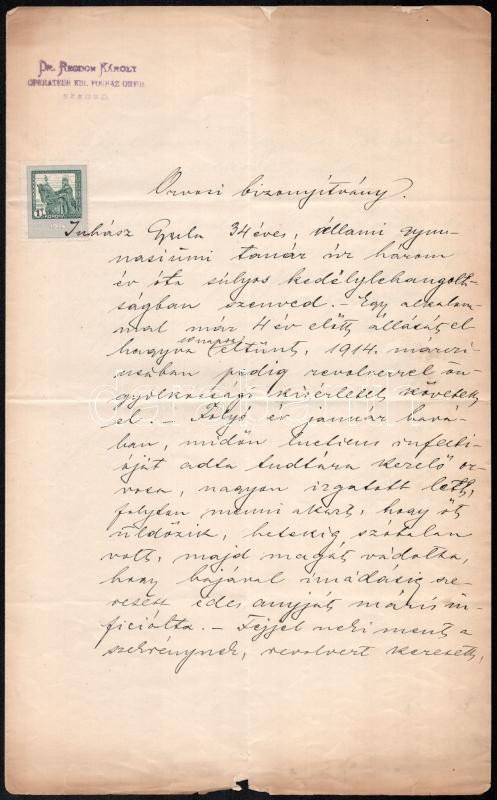 DR. REGDON KÁROLY
OPERATEUR
SZEGED
1 KORONA
1914
Orvosi bizonyítvány.
Juhász Gyula 34 éves, állami gym-
nasiumi tanár úr három
év óta súlyos kedélylehangolt-
ságban szenved. – Egy alkalom-
mal már 4 év előtt állását el
hagyva 10 napra eltünt, 1914. márczi-
usában pedig revolverrel ön-
gyilkossági kisérletet követett
el. – Folyó év január havá-
ban, midőn lueticus infectio-
ját adta tudtára kezelő or-
vosa, nagyon izgatott lett,
folyton menni akart, hogy őt
üldözik, hetekig szótalan
volt, majd magát vádolta,
hogy bajával imádásig sze-
retett édes anyját máris in-
ficiálta. – Fejjel neki ment a
szekrénynek, revolvert keresett,
darabanth